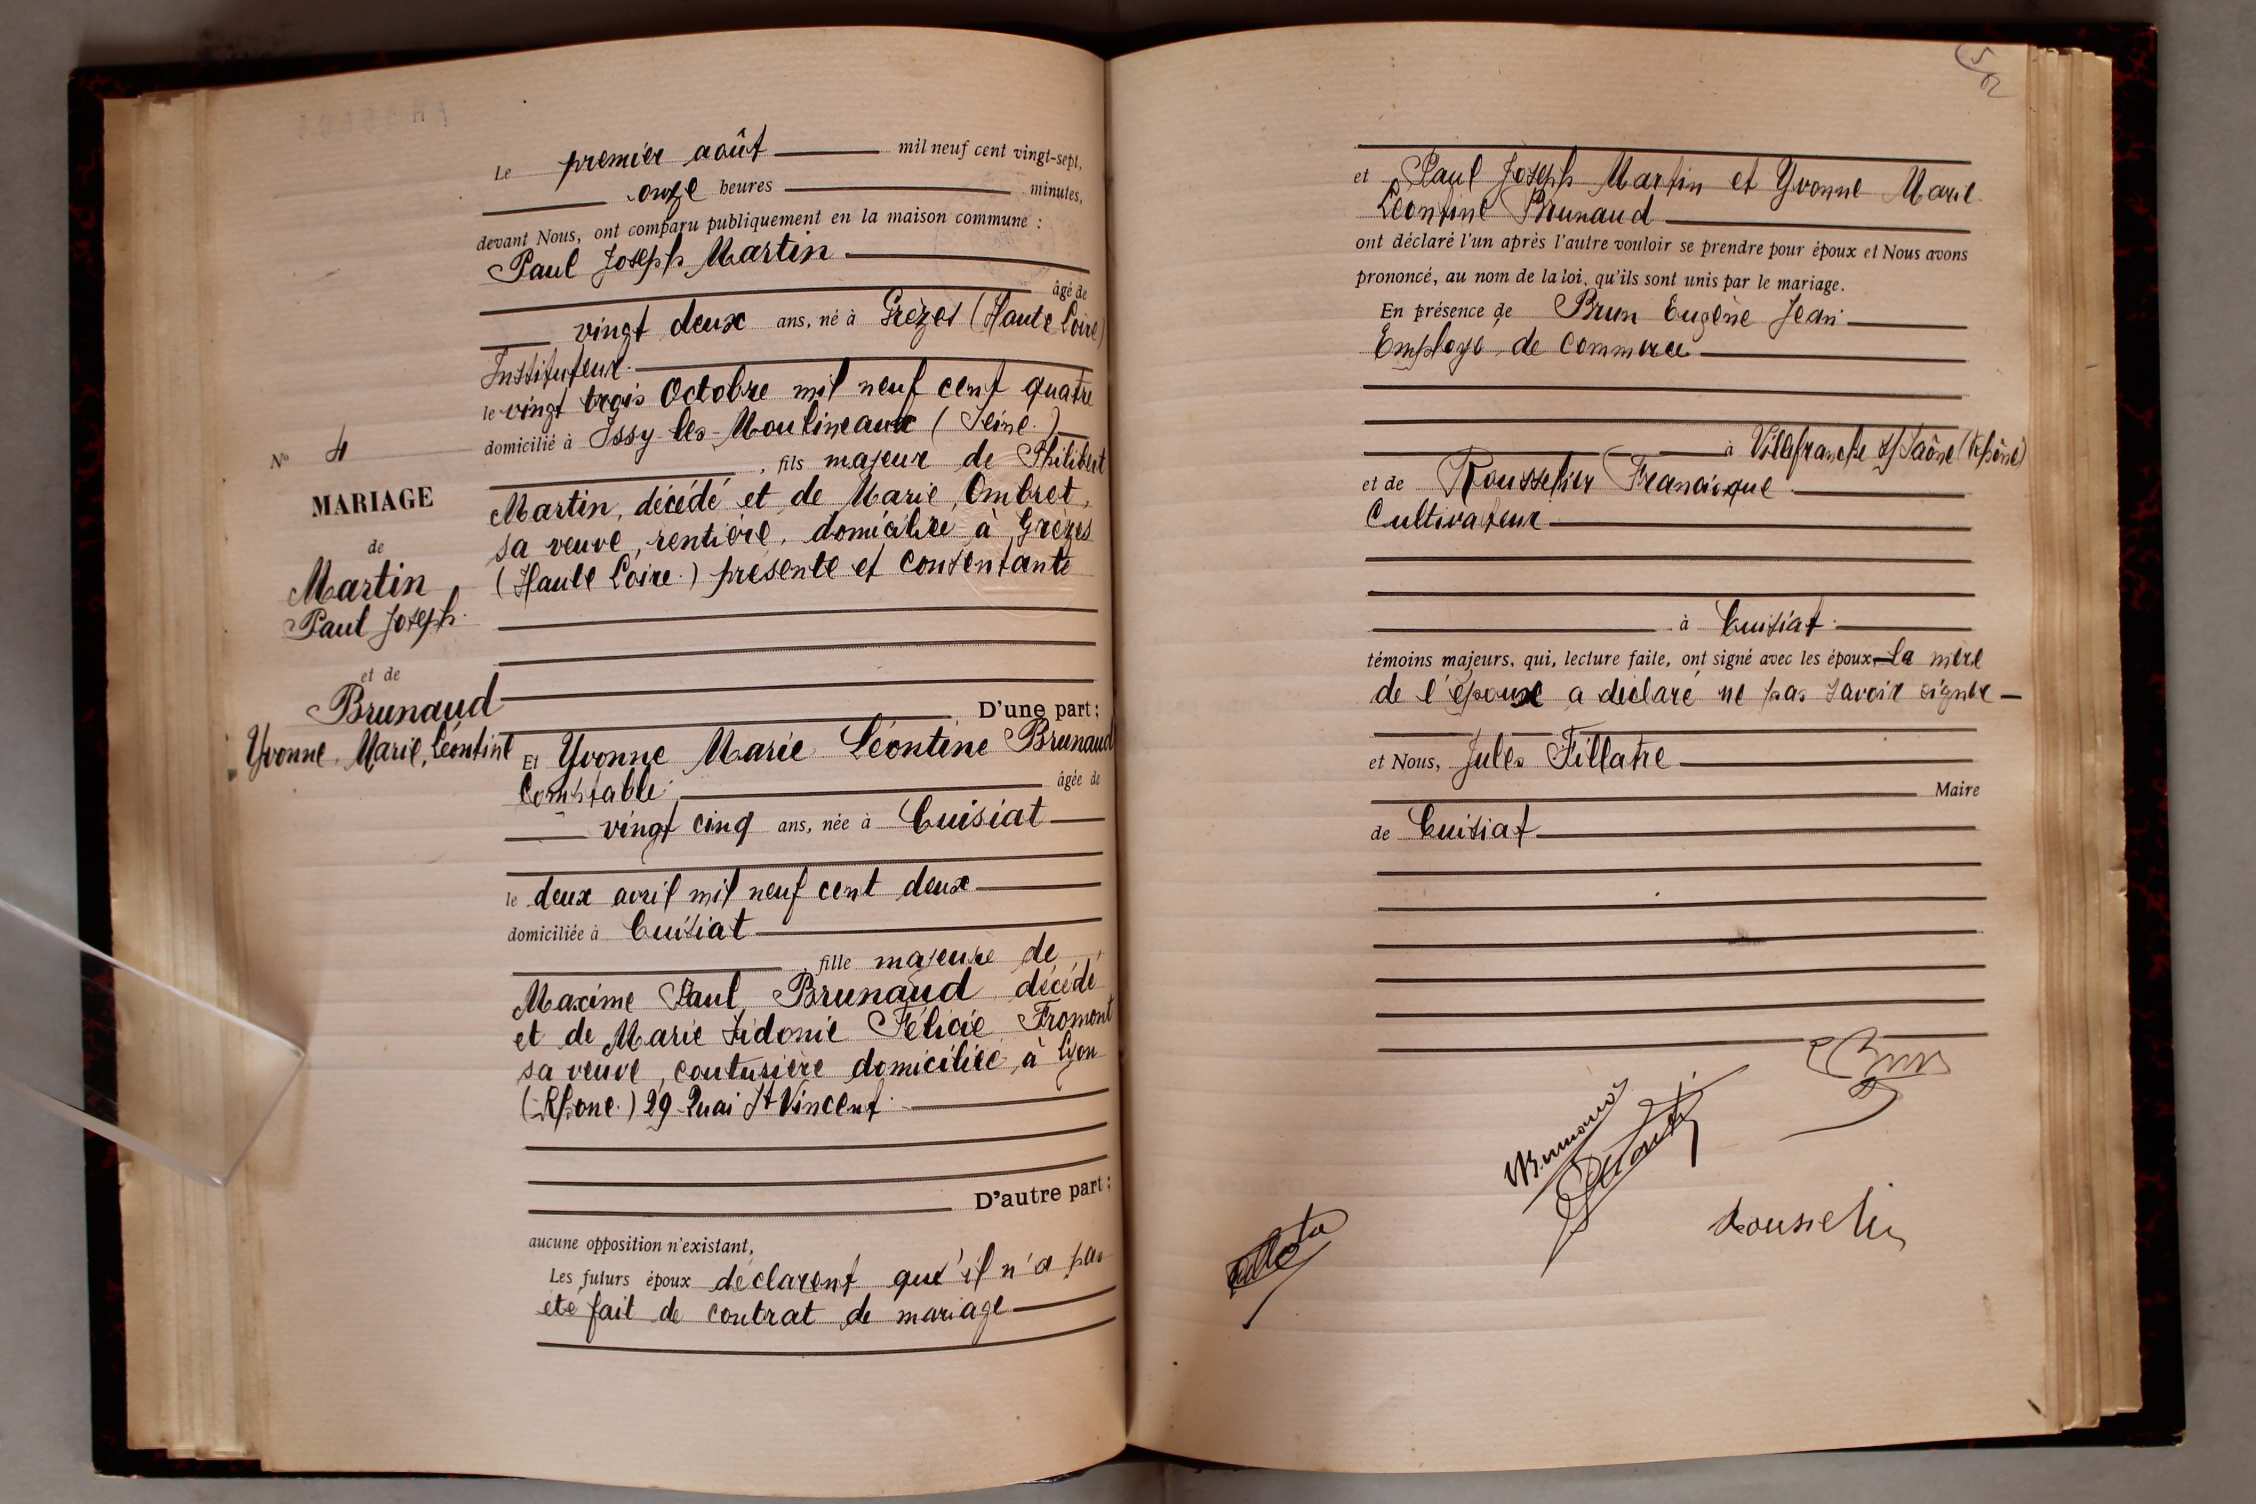 Le premier août mil neuf cent vingt-sept,
onze heures minutes,
devant Nous, ont comparu publiquement en la maison commune :
Paul Joseph Martin
âgé de
vingt deux ans, né à Grèzes (Haute Loire)
Instituteur
le vingt trois Octobre mil neuf cent quatre
domicilié à Issy-les-Moulineaux (Seine.)
, fils majeur de Philibert
Martin, décédé et de Marie Ombret,
sa veuve, rentière, domiciliée à Grèzes
(Haute Loire.) présente et consentante
D'une part ;
N° 4
MARIAGE
de
Martin
Paul Joseph.
et de
Brunaud
Yvonne, Marie, Léontine
Et Yvonne Marie Léontine Brunaud
Comptable âgée de
vingt cinq ans, née à Cuisiat
le deux avril mil neuf cent deux
domiciliée à Cuisiat
, fille majeure de
Maxime Paul Brunaud décédé
et de Marie Sidonie Félicie Fromont
sa veuve, couturière domiciliée à Lyon
(Rhone.) 29 Quai St Vincent.
D'autre part ;
aucune opposition n'existant,
Les futurs époux déclarent qu'il n'a pas
été fait de contrat de mariage
52
et Paul Joseph Martin et Yvonne Marie
Léontine Brunaud
ont déclaré l'un après l'autre vouloir se prendre pour époux et Nous avons
prononcé, au nom de la loi, qu'ils sont unis par le mariage.
En présence de Brun Eugène Jean
Employé de commerce
à Villefranche s/Saône (Rhône)
et de Rousselier Francisque
Cultivateur
à Cuisiat.
témoins majeurs, qui, lecture faite, ont signé avec les époux, La mère
de l'épouse a déclaré ne pas savoir signer —
et Nous, Jules Fillatre
Maire
de Cuisiat
Brun
Brunaud
Martin
Rousselier